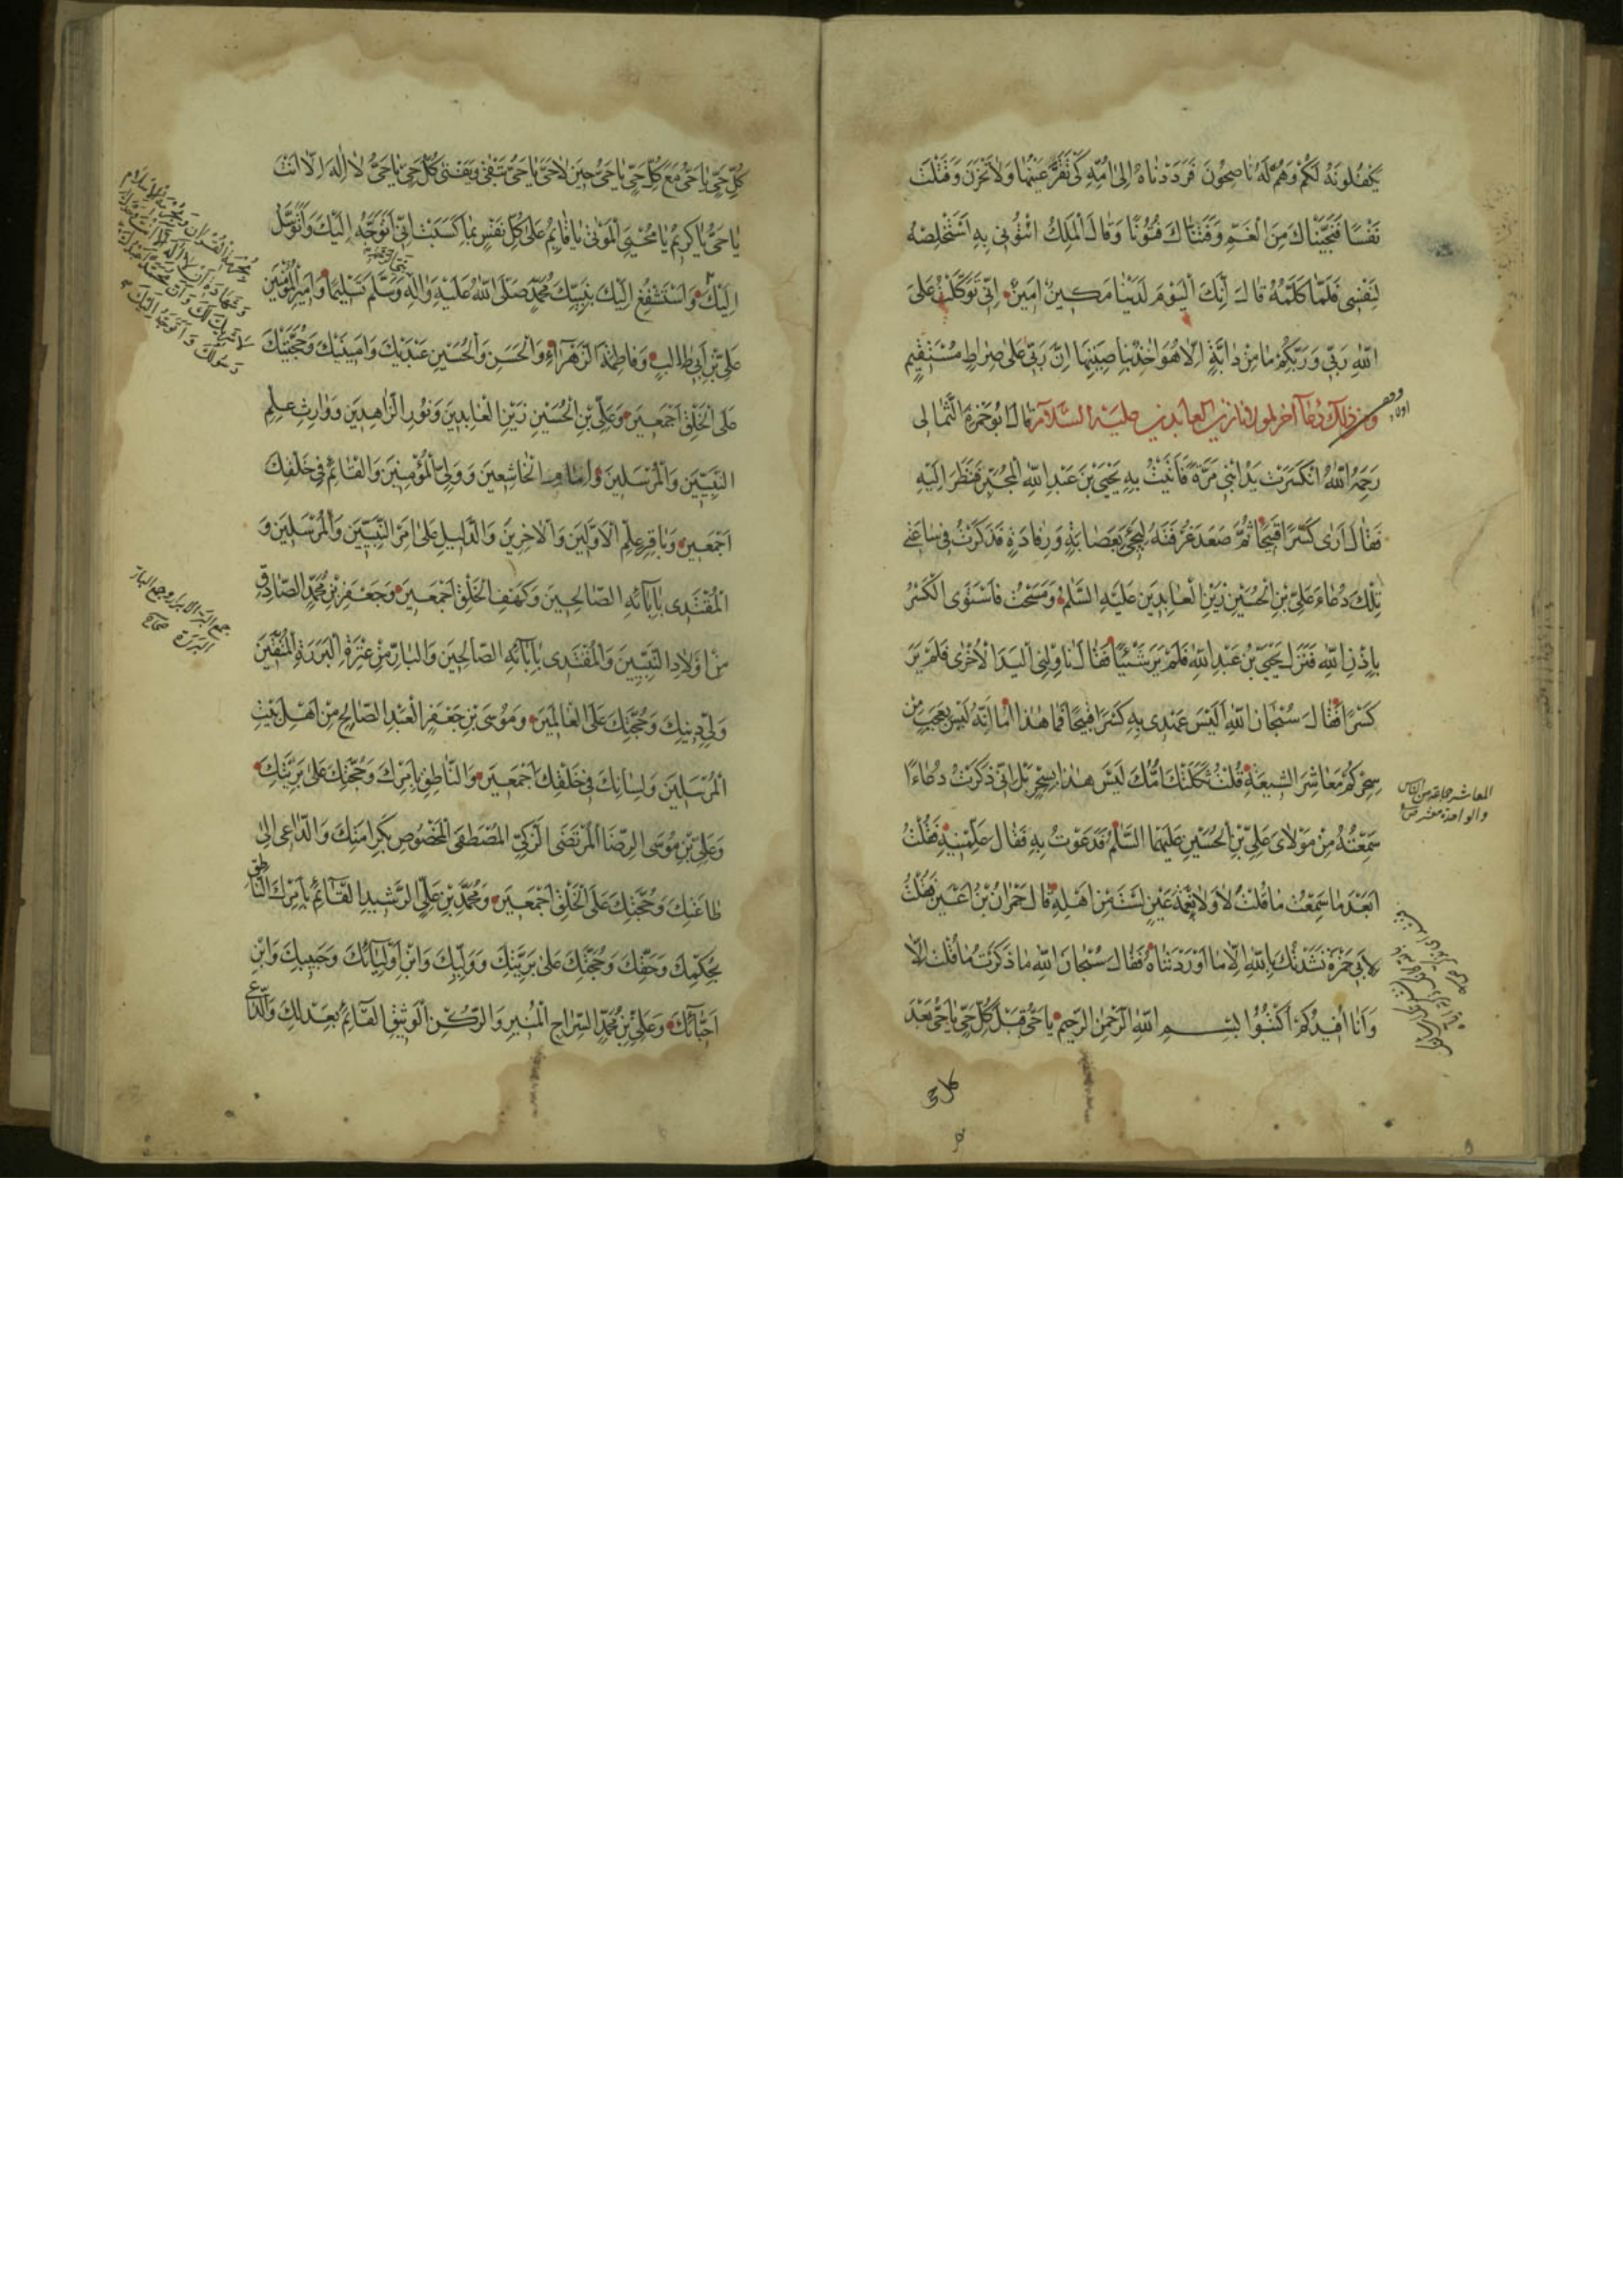 يَكْفُلُونَهُ لَكُمْ وَهُمْ لَهُ نَاصِحُونَ فَرَدَدْنَاهُ إِلَى أُمِّهِ كَيْ تَقَرَّ عَيْنُهَا وَلَا تَحْزَنَ وَقَتَلْتَ
نَفْسًا فَنَجَّيْنَاكَ مِنَ الْغَمِّ وَفَتَنَّاكَ فُتُونًا وَقَالَ الْمَلِكُ ائْتُونِي بِهِ أَسْتَخْلِصْهُ
لِنَفْسِي فَلَمَّا كَلَّمَهُ قَالَ إِنَّكَ الْيَوْمَ لَدَيْنَا مَكِينٌ أَمِينٌ إِنِّي تَوَكَّلْتُ عَلَى
اللهِ رَبِّي وَرَبِّكُمْ مَا مِنْ دَابَّةٍ إِلَّا هُوَ آخِذٌ بِنَاصِيَتِهَا إِنَّ رَبِّي عَلَى صِرَاطٍ مُسْتَقِيمٍ
ومن ذلك دعاء آخر لمولانا زين العابدين عليه السلام قال أبو حمزة الثمالي
رَحِمَهُ اللهُ انْكَسَرَتْ يَدُ ابْنِي مَرَّةً فَأَتَيْتُ بِهِ يَحْيَى بْنَ عَبْدِ اللهِ الْمُجَبِّرَ فَنَظَرَ إِلَيْهِ
فَقَالَ أَرَى كَسْرًا قَبِيحًا ثُمَّ صَعَدَ غُرْفَتَهُ لِيَجِيءَ بِعِصَابَةٍ وَرِفَادَةٍ فَذَكَرْتُ فِي سَاعَتِي
تِلْكَ دُعَاءَ عَلِيِّ بْنِ الْحُسَيْنِ زَيْنِ الْعَابِدِينَ عَلَيْهِ السَّلَامُ وَمَسَحْتُ فَاسْتَوَى الْكَسْرُ
بِإِذْنِ اللهِ فَنَزَلَ يَحْيَى بْنُ عَبْدِ اللهِ فَلَمْ يَرَ شَيْئًا فَقَالَ نَاوِلْنِي الْيَدَ الْأُخْرَى فَلَمْ يَرَ
كَسْرًا فَقَالَ سُبْحَانَ اللهِ أَلَيْسَ عَهْدِي بِهِ كَسْرًا قَبِيحًا فَمَا هَذَا أَمَا إِنَّهُ لَيْسَ بِعَجَبٍ مِنْ
سِحْرِكُمْ مَعَاشِرَ الشِّيعَةِ قُلْتُ ثَكِلَتْكَ أُمُّكَ لَيْسَ هَذَا بِسِحْرٍ بَلْ إِنِّي ذَكَرْتُ دُعَاءً
سَمِعْتُهُ مِنْ مَوْلَايَ عَلِيِّ بْنِ الْحُسَيْنِ عَلَيْهِمَا السَّلَامُ فَدَعَوْتُ بِهِ فَقَالَ عَلِّمْنِيهِ فَقُلْتُ
أَبَعْدَ مَا سَمِعْتُ مَا قُلْتَ لَا وَلَا نِعْمَةَ عَيْنٍ لَسْتَ مِنْ أَهْلِهِ قَالَ حُمْرَانُ بْنُ أَعْيَنَ فَقُلْتُ
لِأَبِي حَمْزَةَ نَشَدْتُكَ بِاللهِ إِلَّا مَا أَوْرَدْتَنَاهُ فَقَالَ سُبْحَانَ اللهِ مَا ذَكَرْتُ مَا قُلْتُ إِلَّا
وَأَنَا أُفِيدُكُمْ اكْتُبُوا بِسْمِ اللهِ الرَّحْمٰنِ الرَّحِيمِ يَا حَيُّ قَبْلَ كُلِّ حَيٍّ يَا حَيُّ بَعْدَ
كل حي
المعاشر جماعة من الناس
والواحدة معشر ص
كُلِّ حَيٍّ يَا حَيُّ مَعَ كُلِّ حَيٍّ يَا حَيُّ حِينَ لَا حَيَّ يَا حَيُّ تَبْقَى وَيَفْنَى كُلُّ حَيٍّ يَا حَيُّ لَا إِلَهَ إِلَّا أَنْتَ
يَا حَيُّ يَا كَرِيمُ يَا مُحْيِيَ الْمَوْتَى يَا قَائِمُ عَلَى كُلِّ نَفْسٍ بِمَا كَسَبَتْ إِنِّي أَتَوَجَّهُ إِلَيْكَ وَأَتَوَسَّلُ
إِلَيْكَ وَأَسْتَشْفِعُ إِلَيْكَ بِنَبِيِّكَ مُحَمَّدٍ صَلَّى اللهُ عَلَيْهِ وَآلِهِ وَسَلَّمَ تَسْلِيمًا وَأَمِيرِ الْمُؤْمِنِينَ
عَلِيِّ بْنِ أَبِي طَالِبٍ وَفَاطِمَةَ الزَّهْرَاءِ وَالْحَسَنِ وَالْحُسَيْنِ عَبْدَيْكَ وَأَمِينَيْكَ وَحُجَّتَيْكَ
عَلَى الْخَلْقِ أَجْمَعِينَ وَعَلِيِّ بْنِ الْحُسَيْنِ زَيْنِ الْعَابِدِينَ وَنُورِ الزَّاهِدِينَ وَوَارِثِ عِلْمِ
النَّبِيِّينَ وَالْمُرْسَلِينَ وَإِمَامِ الْخَاشِعِينَ وَوَلِيِّ الْمُؤْمِنِينَ وَالْقَائِمِ فِي خَلْقِكَ
أَجْمَعِينَ وَبَاقِرِ عِلْمِ الْأَوَّلِينَ وَالْآخِرِينَ وَالدَّلِيلِ عَلَى أَمْرِ النَّبِيِّينَ وَالْمُرْسَلِينَ وَ
الْمُقْتَدِي بِآبَائِهِ الصَّالِحِينَ وَكَهْفِ الْخَلْقِ أَجْمَعِينَ وَجَعْفَرِ بْنِ مُحَمَّدٍ الصَّادِقِ
مِنْ أَوْلَادِ النَّبِيِّينَ وَالْمُقْتَدِي بِآبَائِهِ الصَّالِحِينَ وَالْبَارِّ مِنْ عِتْرَةِ الْبَرَرَةِ الْمُتَّقِينَ
وَلِيِّ دِينِكَ وَحُجَّتِكَ عَلَى الْعَالَمِينَ وَمُوسَى بْنِ جَعْفَرٍ الْعَبْدِ الصَّالِحِ مِنْ أَهْلِ بَيْتِ
الْمُرْسَلِينَ وَلِسَانِكَ فِي خَلْقِكَ أَجْمَعِينَ وَالنَّاطِقِ بِأَمْرِكَ وَحُجَّتِكَ عَلَى بَرِيَّتِكَ
وَعَلِيِّ بْنِ مُوسَى الرِّضَا الْمُرْتَضَى الزَّكِيِّ الْمُصْطَفَى الْمَخْصُوصِ بِكَرَامَتِكَ وَالدَّاعِي إِلَى
طَاعَتِكَ وَحُجَّتِكَ عَلَى الْخَلْقِ أَجْمَعِينَ وَمُحَمَّدِ بْنِ عَلِيٍّ الرَّشِيدِ الْقَائِمِ بِأَمْرِكَ النَّاطِقِ
بِحُكْمِكَ وَحَقِّكَ وَحُجَّتِكَ عَلَى بَرِيَّتِكَ وَوَلِيِّكَ وَابْنِ أَوْلِيَائِكَ وَحَبِيبِكَ وَابْنِ
أَحِبَّائِكَ وَعَلِيِّ بْنِ مُحَمَّدٍ السِّرَاجِ الْمُنِيرِ وَالرُّكْنِ الْوَثِيقِ الْقَائِمِ بِعَدْلِكَ وَالدَّاعِي
جمع البر الابرار وجمع البار
البررة صحاح